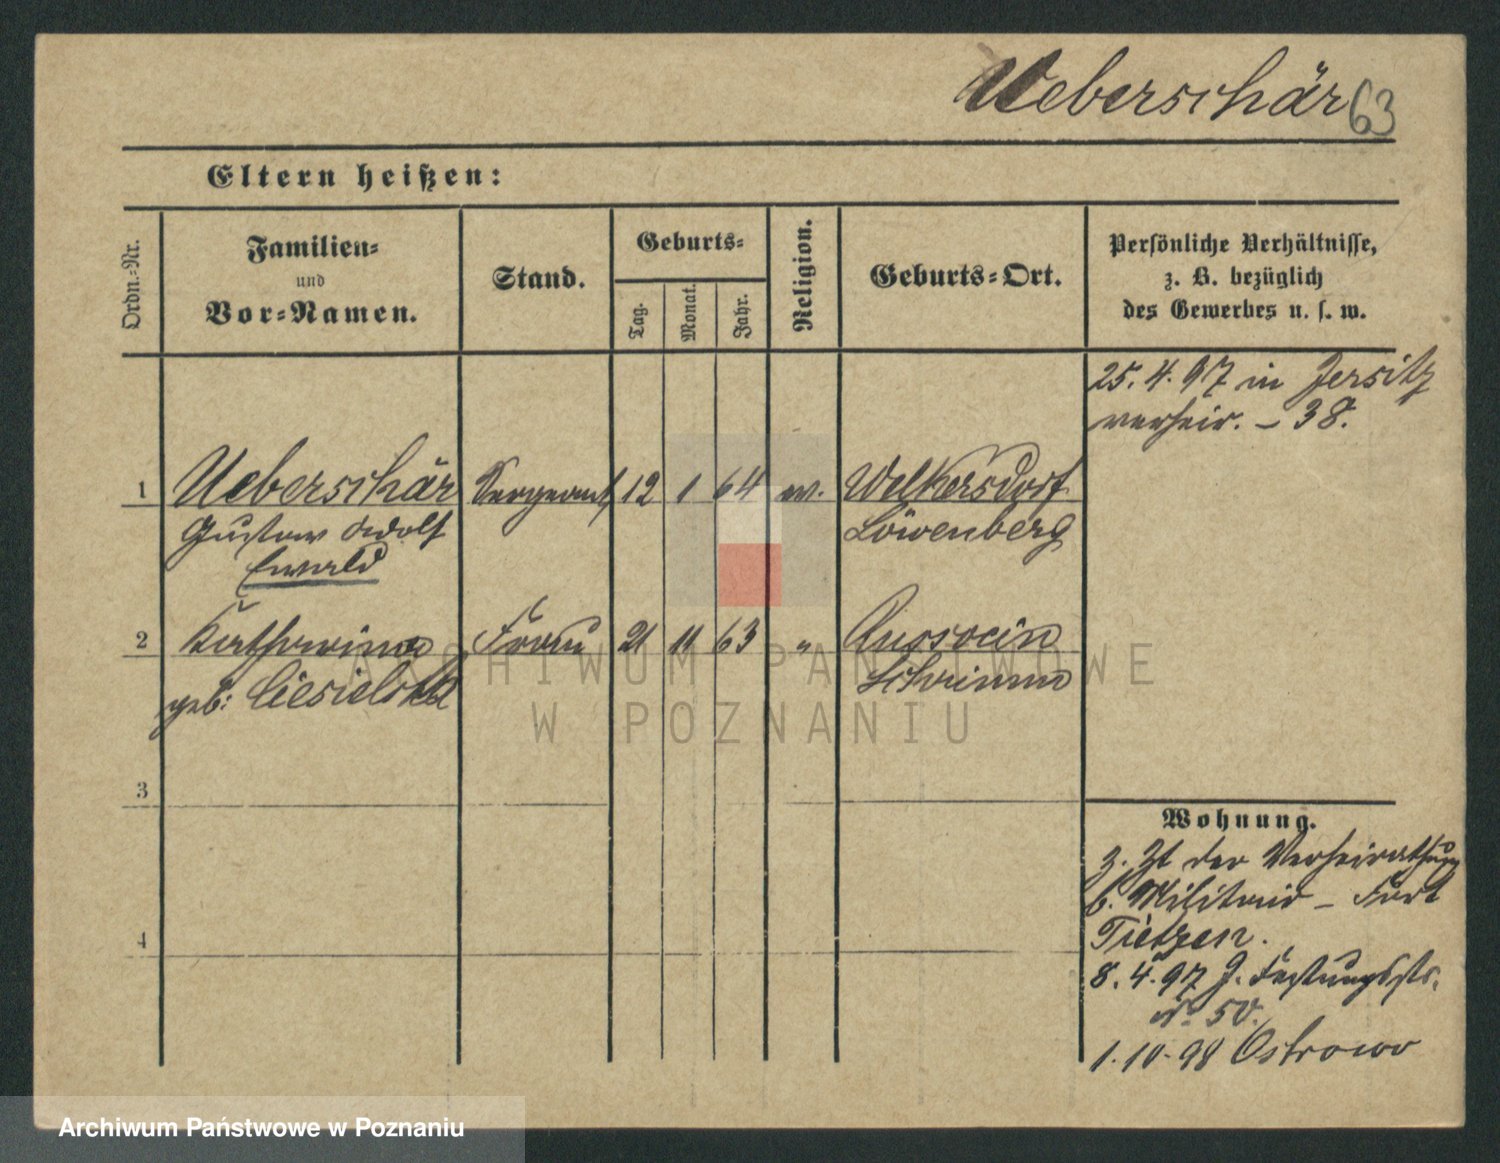 Ueberschär 63
Eltern heißen:
Ordn.-Nr.
Familien-
und
Vor-Namen.
Stand.
Geburts-
Tag.
Monat.
Jahr.
Religion.
Geburts-Ort.
Persönliche Verhältnisse,
z. B. bezüglich
des Gewerbes u. s. w.
25. 4. 97 in Jersitz
verheir. - 38.
1 Ueberschär Sergeant 12 1 64 ev. Welkersdorf
Gustav Adolf Löwenberg
Ewald
2 Katharina Frau 21 11 63 " Russocin
geb: Ciesielska Schrimm
3
4
Wohnung.
z. Zt der Verheirathung
b. Militair - Fort
Tietzen.
8. 4. 97 J. Festungsstr.
No 50.
1. 10. 98 Ostrowo
ARCHIWUM PAŃSTWOWE
W POZNANIU
Archiwum Państwowe w Poznaniu